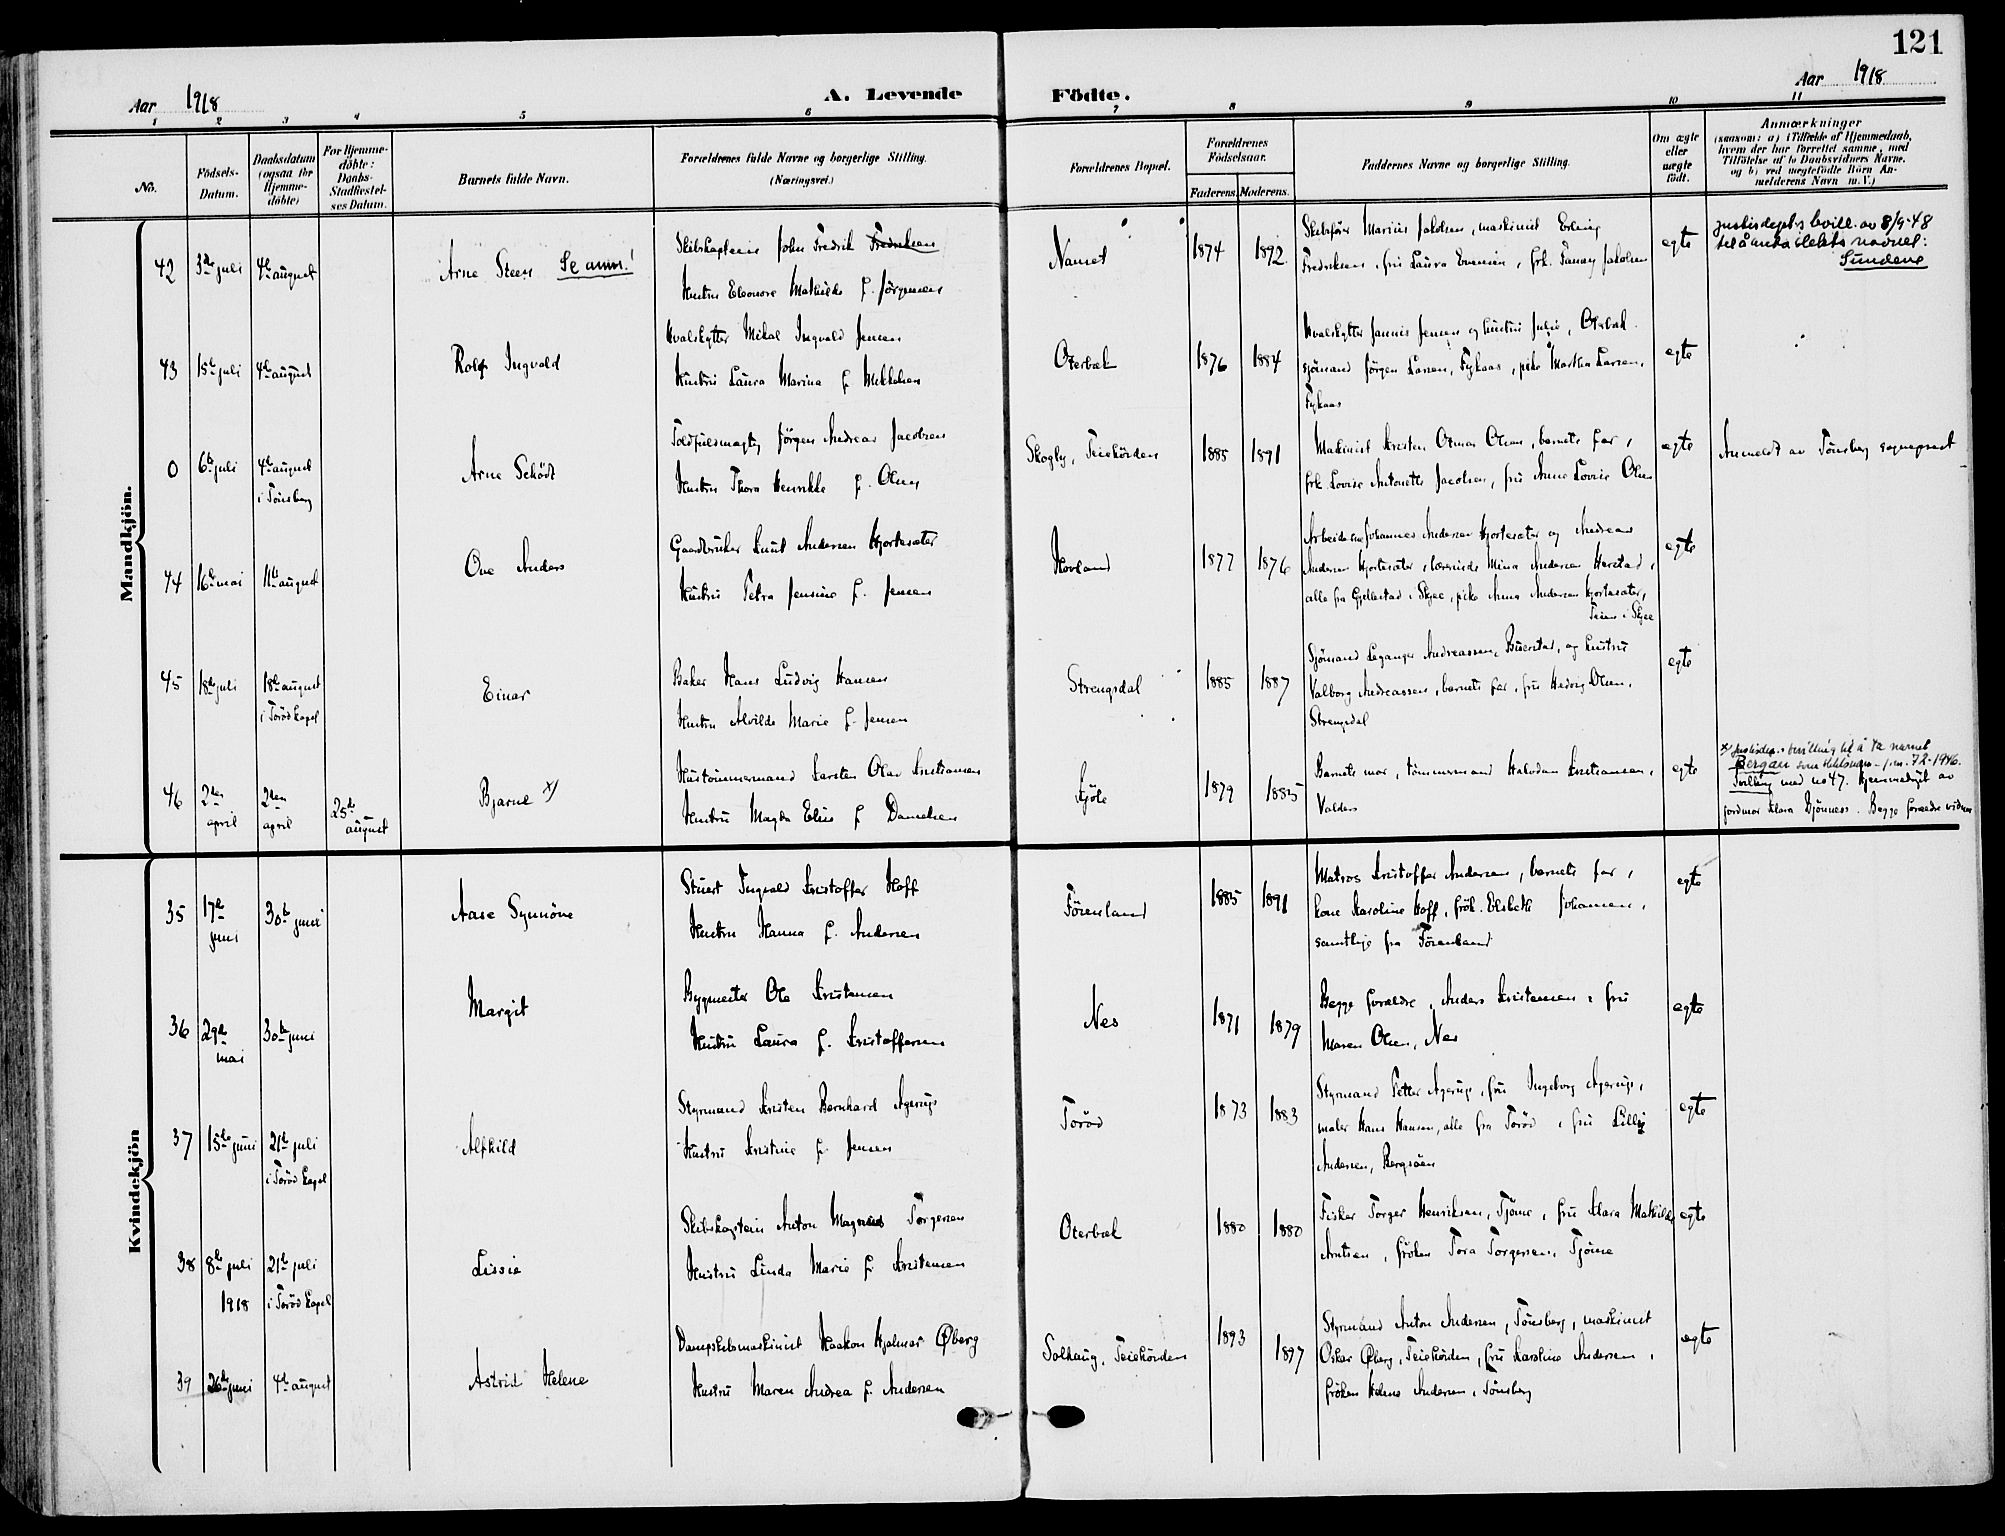 121
Aar 1918
A. Levende
Födte.
Aar 1918
1 2 3 4 5 6 7 8 9 10 11
No.
Födsels-
Datum.
Daabsdatum
(ogsaa for
Hjemme-
döbte)
For Hjemme-
döbte:
Daabs-
Stadfæstel-
ses Datum.
Barnets fulde Navn.
Forældrenes fulde Navne og borgerlige Stilling.
(Næringsvei.)
Forældrenes Bopæl.
Forældrenes
Födselsaar.
Faderens. Moderens.
Faddernes Navne og borgerlige Stilling.
Om ægte
eller
uægte
födt.
Anmærkninger
(saasom: a) i Tilfælde af Hjemmedaab,
hvem der har forrettet samme, med
Tilföielse af to Daabsvidners Navne,
og b) ved uægtefödte Börn An-
melderens Navn m. V.)
Mandkjön.
42
3de juli
4de august
Arne Steen Se anm.!
Skibskaptein John Fredrik Fredriksen
Hustru Eleonore Mathilde f. Jörgensen
Namet
1874
1892
Skibsförer Marius Jakobsen, maskinist Erling
Fredriksen, fru Laura Evensen, frk. Fanny Jakobsen
egte
Justisdept.s bevill. av 8/9-48
til å anta slektsnavnet:
Sundene
43
15de juli
4de august
Rolf Ingvald
Hvalskytter Mikal Ingvald Jensen
Hustru Laura Marina f. Mikkelsen
Oterbæk
1876
1884
Hvalskytter Jannis Jensen og hustru Julie, Oterbæk.
sjömand Jörgen Larsen, Fykaas, pike Martha Larsen,
Fykaas
egte
0
6te juli
4de august
i Tönsberg
Arne Schödt
Toldfuldmægtig Jörgen Andreas Jacobsen
Hustru Thora Henrikke f. Olsen
Skogly, Teiehöiden
1885
1891
Maskinist Kristen Otmar Olsen, barnets far,
frk. Lovise Antonette Jacobsen, fru Anne Lovise Olsen
egte
Anmeldt av Tönsberg sogneprest
44
16de mai
11te august
Ove Anders
Gaardbruker Knut Andersen Hjortesæter
Hustru Petra Jensine f. Jensen
Hovland
1877
1876
Arbeiderne Johannes Andersen Hjortesæter og Andreas
Andersen Hjortesæter, lærerinde Mina Andersen Herstad,
alle fra Gjellestad i Skjee, pike Anna Andersen Hjortesæter,
Teien i Skjee
egte
45
18de juli
18de august
i Torød kapel
Einar
Baker Hans Ludvig Hansen
Hustru Alvilde Marie f. Jensen
Strengsdal
1885
1887
Sjömand Leganger Andreassen, Buerstad, og hustru
Valborg Andreassen, barnets far, fru Hedvig Olsen,
Strengsdal
egte
46
2den
april
2den
april
25de
august
Bjarne x/
Hustömmermand Karsten Olav Kristiansen
Hustru Magda Elise f. Danielsen
Kjöle
1879
1885
Barnets mor, tömmermand Halvdan Kristiansen,
Valders
egte
x/ Justisdep.s bevilling til å ta navnet
Bergan som slektsnavn - j.nr. 72-1946.
Tvilling med no 47. Hjemmedöpt av
jordmor Klara Bjönness. Begge forældre vidner
Kvindekjön
35
17de
juni
30te juni
Aase Synnöve
Stuert Ingvald Kristoffer Hoff
Hustru Hanna f. Andersen
Förenland
1885
1891
Matros Kristoffer Andersen, barnets far,
kone Karoline Hoff, frök. Elsbeth Johansen,
samtlige fra Förenland
egte
36
29de
mai
30te juni
Margit
Bygmester Ole Kristensen
Hustru Laura f. Kristoffersen
Nes
1871
1879
Begge forældre, Anders Kristensen, fru
Maren Olsen, Nes
egte
37
15de juni
21de juli
i Torød kapel
Alfhild
Styrmand Kristen Bernhard Agerup
Hustru Kristine f. Jensen
Torød
1873
1883
Styrmand Petter Agerup, fru Ingeborg Agerup,
maler Hans Hansen, alle fra Torød, fru Lilly
Andersen, Bergsöen
egte
38
8de juli
1918
21de juli
i Torød kapel
Lissie
Skibskaptein Anton Magnus Torgersen
Hustru Linda Marie f. Kristensen
Oterbæk
1880
1880
Fisker Torger Henriksen, Tjöme, fru Klara Mathilde
Arntsen, fröken Tora Torgersen, Tjöme
egte
39
26de juni
4de august
Astrid Helene
Dampskibsmaskinist Haakon Hjalmar Øberg
Hustru Maren Andrea f. Andersen
Solhaug, Teiehöiden
1893
1897
Styrmand Anton Andersen, Tönsberg, maskinist
Oskar Øberg, Teiehöiden, fru Karoline Andersen,
fröken Helene Andersen, Tönsberg
egte